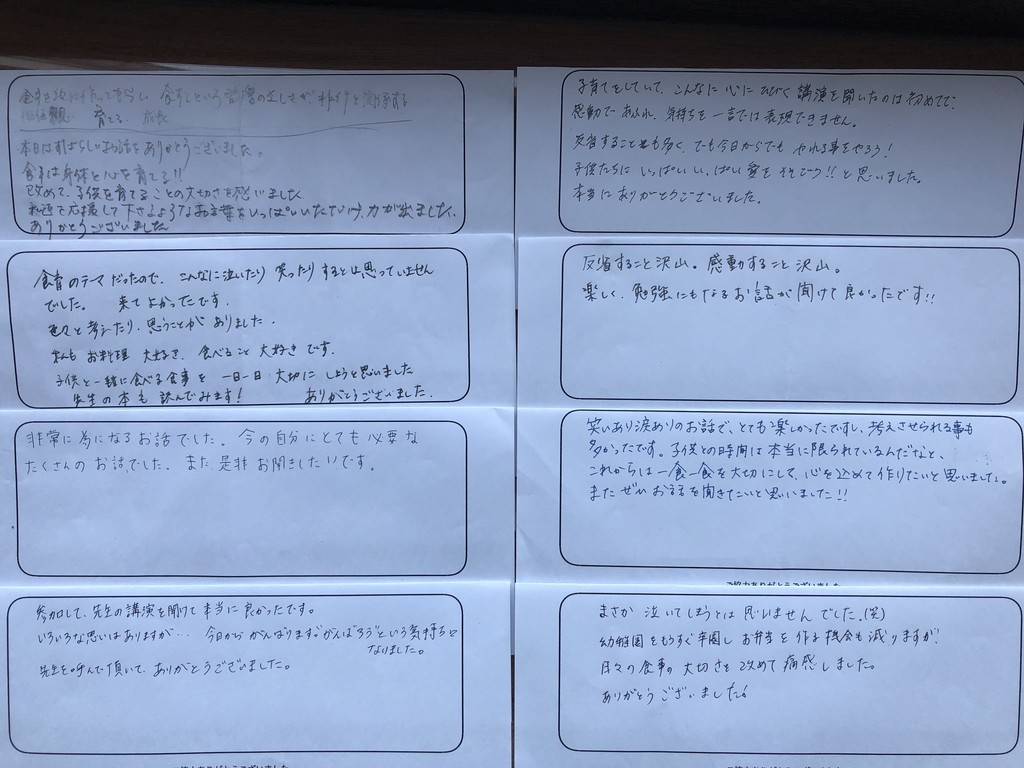 育てる 成長
本日はすばらしいお話をありがとうございました。
食事は身体と心を育てる!!
改めて、子供を育てることの大切さを感じました
応援して下さるようなお言葉をいっぱいいただけ、力が出ました。
ありがとうございました
食育のテーマだったので、こんなに泣いたり笑ったりするとは思っていません
でした。 来てよかったです。
色々と考えたり、思うことがありました。
私もお料理大好き、食べること大好きです。
子供と一緒に食べる食事を一日一日大切にしようと思いました
先生の本も読んでみます! ありがとうございました。
非常に為になるお話でした。今の自分にとても必要な
たくさんのお話でした。また是非お聞きしたいです。
参加して、先生の講演を聞けて本当に良かったです。
いろいろな思いはありますが… 今日からがんばります。がんばろうという気持ちに
なりました。
先生を呼んで頂いて、ありがとうございました。
子育てをしていて、こんなに心にひびく講演を聞いたのは初めてで、
感動であふれ、気持ちを一言では表現できません。
反省することも多く、でも今日からでもやれる事をやろう!
子供たちにいっぱいいっぱい愛をそそごう!!と思いました。
本当にありがとうございました。
反省すること沢山。感動すること沢山。
楽しく、勉強にもなるお話が聞けて良かったです!!
笑いあり涙ありのお話で、とても楽しかったですし、考えさせられる事も
多かったです。子供との時間は本当に限られているんだなと、
これからは一食一食を大切にして、心を込めて作りたいと思いました。
またぜひお話を聞きたいと思いました!!
ご協力ありがとうございました
まさか泣いてしまうとは思いませんでした。(笑)
幼稚園をもうすぐ卒園しお弁当を作る機会も減りますが、
日々の食事の大切さを改めて痛感しました。
ありがとうございました。